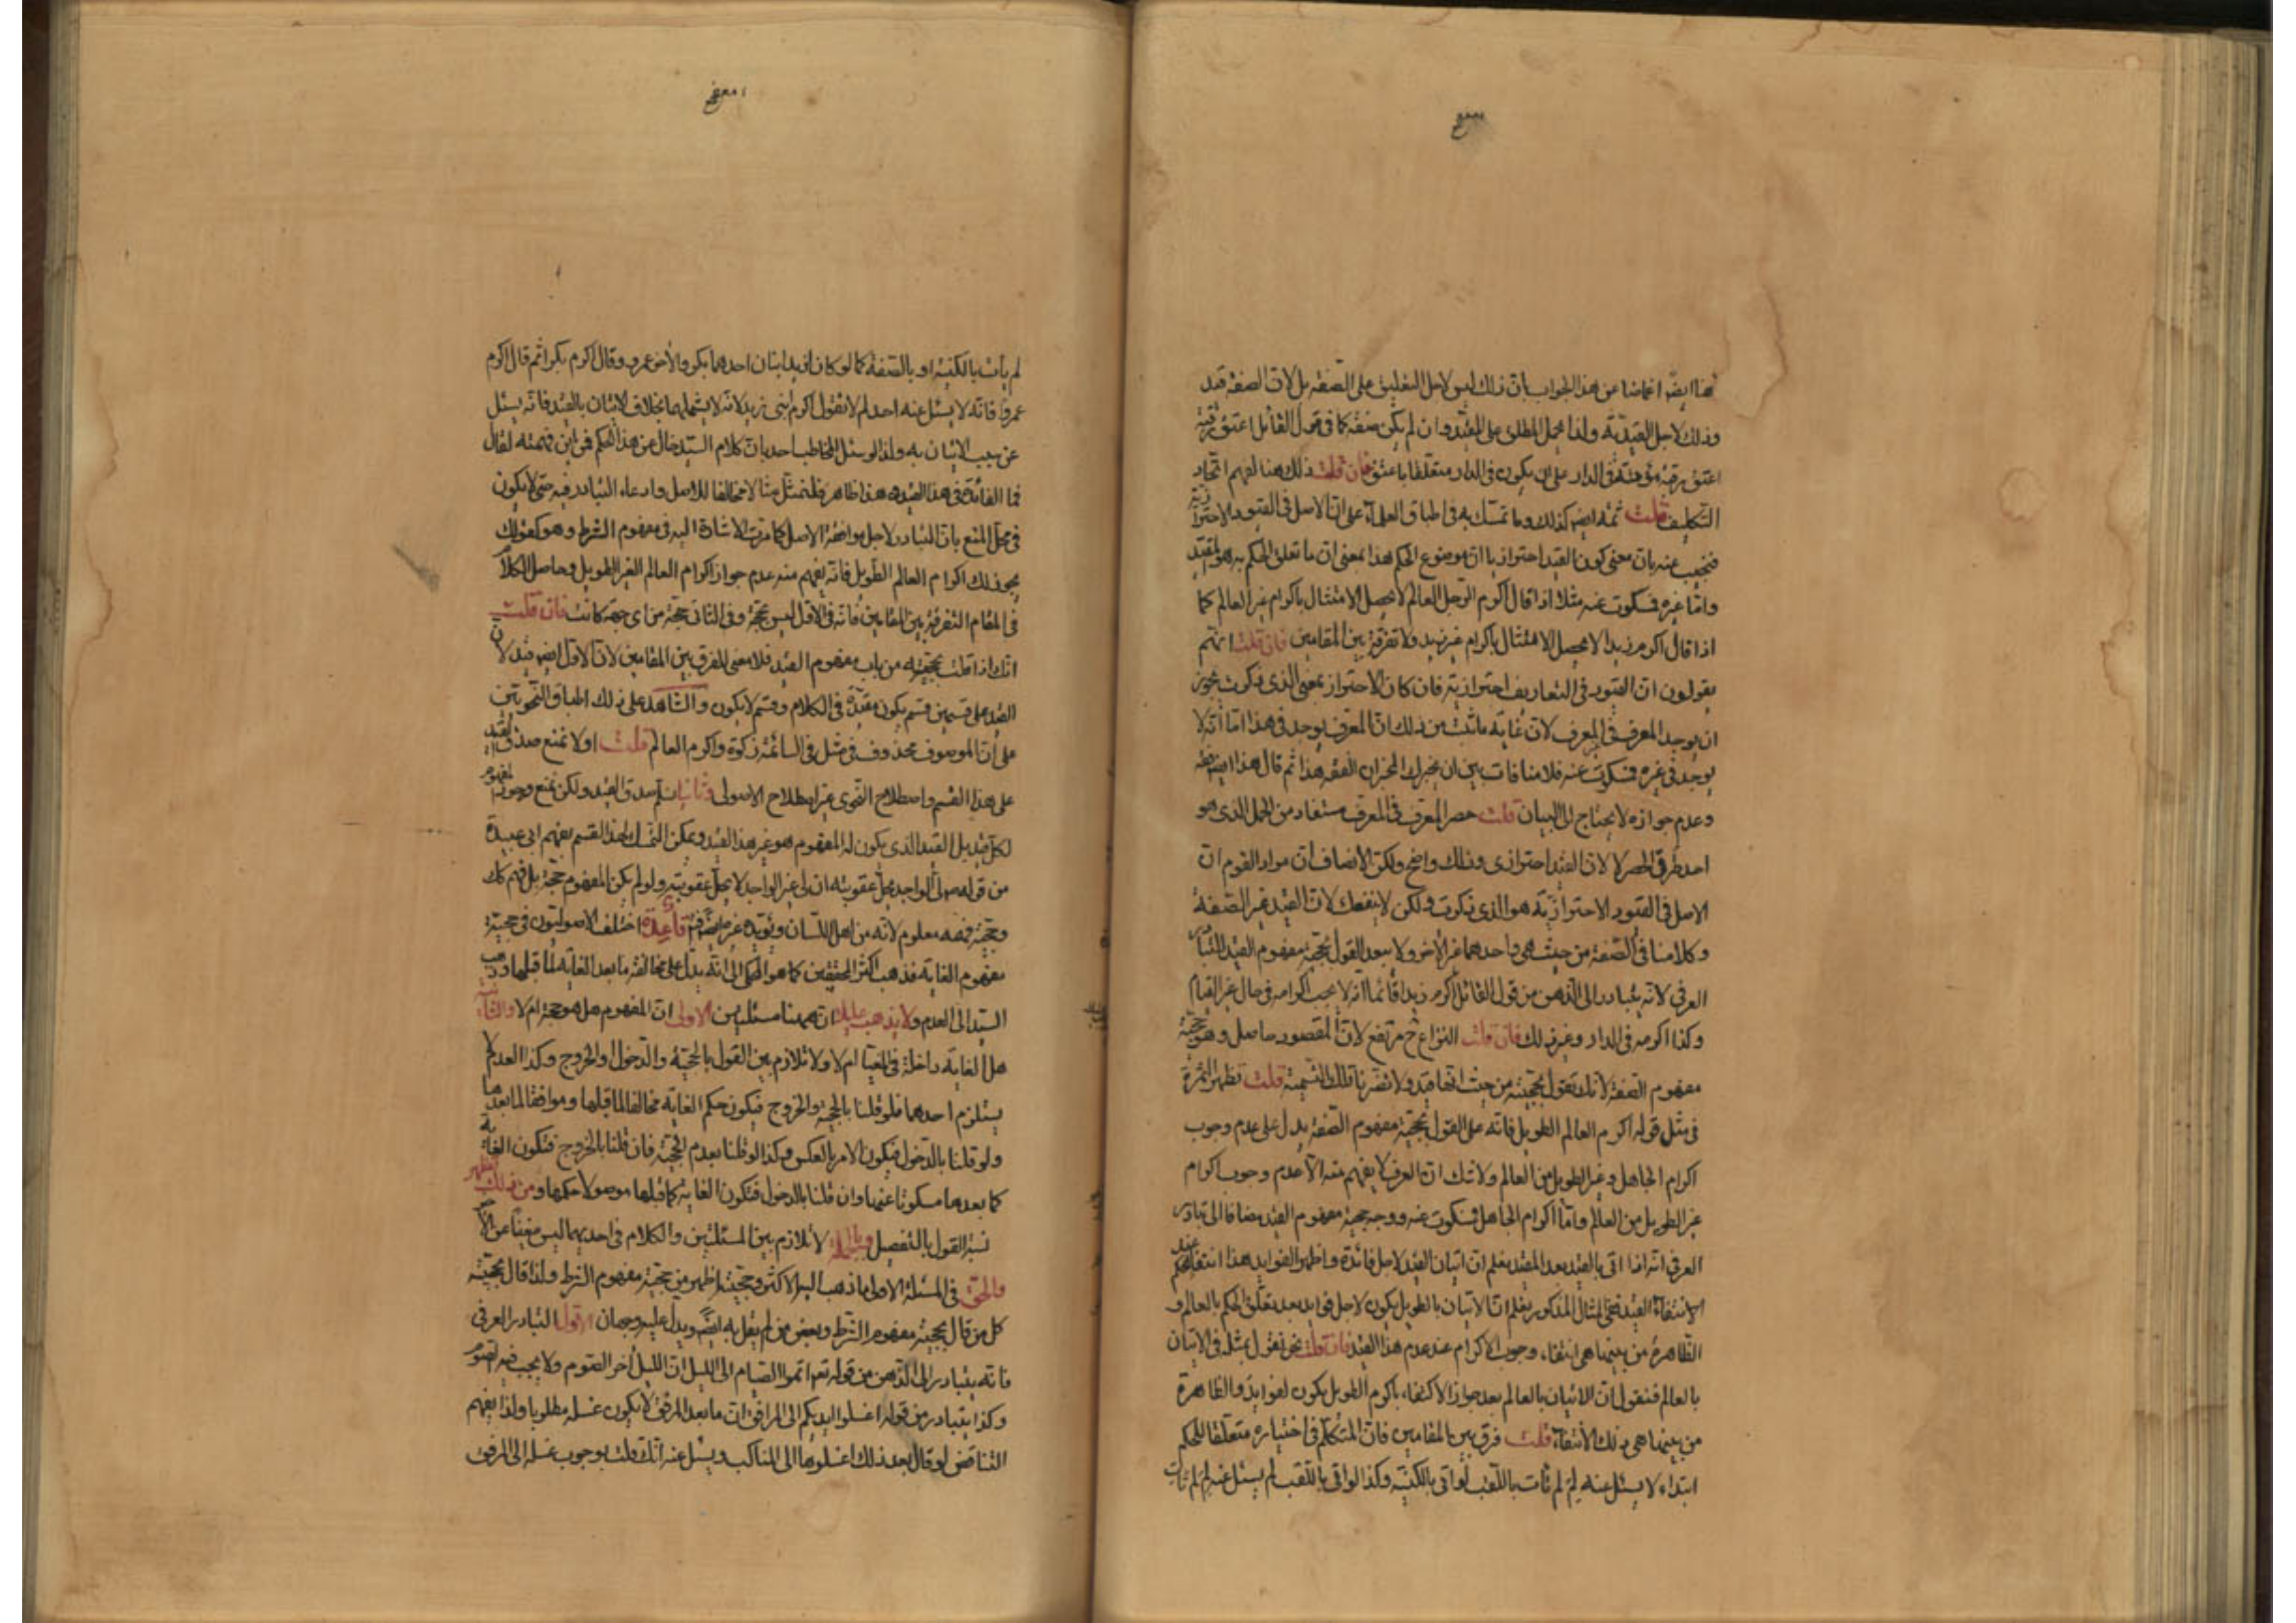 هنا ايضً اغماضا عن هذا الجواب بان ذلك ليس لاجل التعليق على الصفة بل لان الصفة قيد
وذلك لاجل القيدية ولذا يحمل المطلق على المقيد وان لم يكن صفة كما فى قول القائل اعتق رقبة
اعتق رقبة مؤمنة فى الدار على ان يكون فى الدار متعلقا باعتق فان قلت ذلك هنا لفهم اتحاد
التكليف قلت ثمة ايضً كذلك وما تمسك به فى اطباق العلماء على ان الاصل فى القيود الاحترازية
فنجيب عنه بان معنى كون القيد احترازيا ان موضوع الحكم هذا بمعنى ان ما تعلق الحكم به هو المقيد
واما غيره فسكوت عنه مثلا اذا قال اكرم الرجل العالم لا يحصل الامتثال باكرام غير العالم كما
اذا قال اكرم زيدا لا يحصل الامتثال باكرام غير زيد ولا تفرقة بين المقامين فان قلت انهم
يقولون ان القيود فى التعاريف احترازية فان كان الاحتراز بمعنى الذى ذكرت يجوز
ان يوجد المعرف فى المعرف لان غاية ما ثبت من ذلك ان المعرف يوجد فى هذا اما انه لا
يوجد فى غيره فسكوت عنه فلا منافات بين ان يخبرك المخبر ان الفقه هذا ثم قال هذا ايضً فقه
وعدم جوازه لا يحتاج الى البيان قلت حصر المعرف فى المعرف مستفاد من الحمل الذى هو
احد طرق الحصر لا لان القيد احترازى وذلك واضح ولكن الانصاف ان مراد القوم ان
الاصل فى القيود الاحترازية هو الذى ذكرت ولكن لا ينفعك لان القيد غير الصفة
وكلامنا فى الصفة من حيث هى واحدهما غير الاخر ولا يبعد القول بحجية مفهوم القيد للتبادر
العرفى لانه يتبادر الى الذهن من قول القائل اكرم زيدا قائما انه لا يجب اكرامه فى حال غير القيام
وكذا اكرمه فى الدار وغير ذلك فان قلت النزاع ح مرتفع لان المقصود حاصل وهو حجية
مفهوم الصفة لانك تقول بحجيته من حيث انها قيد ولا تضرنا تلك التسمية قلت تظهر الثمرة
فى مثل قوله اكرم العالم الطويل فانه على القول بحجية مفهوم الصفة يدل على عدم وجوب
اكرام الجاهل وغير الطويل من العالم ولا شك ان العرف لا يفهم منه الا عدم وجوب اكرام
غير الطويل من العالم واما اكرام الجاهل فسكوت عنه ووجه حجية مفهوم القيد مضافا الى تبادر
العرفى انه اذا اتى بالقيد بعد المقيد نعلم ان اتيان القيد لاجل فائدة واظهر الفوايد هذا انتفاء الحكم عند
الانتفاء القيد ففى المثال المذكور نعلم ان الاتيان بالطويل يكون لاجل فوايد بعد تعلق الحكم بالعالم و
الظاهرة من بينها هى انتفاء وجوب الاكرام عند عدم هذا القيد فان قلت نحن نقول بمثله فى الاتيان
بالعالم فنقول ان الاتيان بالعالم بعد جواز الاكتفاء باكرم الطويل يكون لفوايد والظاهرة
من بينها هى ذلك الانتفاء قلت فرق بين المقامين فان المتكلم فى اختياره متعلقا للحكم
ابتداء لا يسئل عنه لِمَ لم تات باللقب لو اتى بالكنية وكذا لو اتى باللقب لم يسئل عنه لِمَ لم تات
لم يأت بالكنية او بالصفة كما لو كان لزيد ابنان احدهما بكر والاخر عمرو وقال اكرم بكرا ثم قال اكرم
عمروا فانه لا يسئل عنه احد لم لا تقول اكرم ابنى زيد لانه لا يشملهما بخلاف الاتيان بالقيد فانه يسئل
عن سبب الاتيان به ولذا لو سئل المخاطب احد بان كلام السيد خال عن هذا الحكم فمن اين فهمته لقال
فما الفائدة فى هذا القيد هذا ظاهر فلنمثل مثالا مخالفا للاصل وادعاء التبادر فيه حتى لا يكون
فى محل المنع بان التبادر لاجل موافقة الاصل كما مرت الاشارة اليه فى مفهوم الشرط وهو كقولك
يجوز لك اكرام العالم الطويل فانه يفهم منه عدم جواز اكرام العالم الغير الطويل وحاصل الكلام
فى المقام التفرقة بين المقامين فانه فى الاول ليس بحجة وفى الثانى حجة من اى جهة كانت فان قلت
انك اذا قلت بحجيته من باب مفهوم القيد فلا معنى للفرق بين المقامين لان الاول ايضً قيد لان
القيد على قسمين قسم يكون مقيده فى الكلام وقسم لا يكون والشاهد على ذلك اطباق النحويين
على ان الموصوف محذوف فى مثل فى السائمة زكوة واكرم العالم قلت اولا نمنع صدق القيد
على هذا القسم واصطلاح النحوى غير اصطلاح الاصولى وثانيا سلم صدق القيد ولكن نمنع وجود المفهوم
لكل قيد بل القيد الذى يكون له المفهوم هو غير هذا القيد ويمكن التمسك لهذا القسم بفهم ابى عبيدة
من قوله ص لى الواجد يحل عقوبته ان لى غير الواجد لا يحل عقوبته ولو لم يكن المفهوم حجة بل فهم كك
وحجية فهمه معلوم لانه من اهل اللسان ويؤيده غيره ايضً قاعدة اختلف الاصوليون فى حجية
مفهوم الغاية فذهب اكثر المحققين كما هو المحكى الى انه يدل على مخالفة ما بعد الغاية لما قبلها وذهب
السيد الى العدم ولا يذهب عليك ان ههنا مسئلتين الاولى ان المفهوم هل هو حجة ام لا والثانية
هل الغاية داخلة فى المغيا ام لا ولا تلازم بين القول بالحجية والدخول والخروج وكذا العدم لا
يستلزم احدهما فلو قلنا بالحجية والخروج فيكون حكم الغاية مخالفا لما قبلها وموافقا لما بعدها
ولو قلنا بالدخول فيكون الامر بالعكس وكذا لو قلنا بعدم الحجية فان قلنا بالخروج فتكون الغاية
كما بعدها مسكوتا عنها وان قلنا بالدخول فتكون الغاية كما قبلها موصولا حكمها ومن ذلك يظهر
نسبة القول بالتفصيل وبالجملة لا تلازم بين المسئلتين والكلام فى احديهما ليس مغنيا عن الاخر
والحق فى المسئلة الاولى ما ذهب اليه الاكثر وحجيته اظهر من حجية مفهوم الشرط ولذا قال بحجيته
كل من قال بحجية مفهوم الشرط وبعض من لم يقل به ايضً ويدل عليه وجهان الاول التبادر العرفى
فانه يتبادر الى الذهن من قوله تعم اتموا الصيام الى الليل ان الليل آخر الصوم ولا يجب فيه الصوم
وكذا يتبادر من قوله اغسلوا ايديكم الى المرافق ان ما بعد المرفق لا يكون غسله مطلوبا ولذا يفهم
التناقض لو قال بعد ذلك اغسلوها الى المناكب ويسئل عنه انك قلت بوجوب غسله الى المرفق